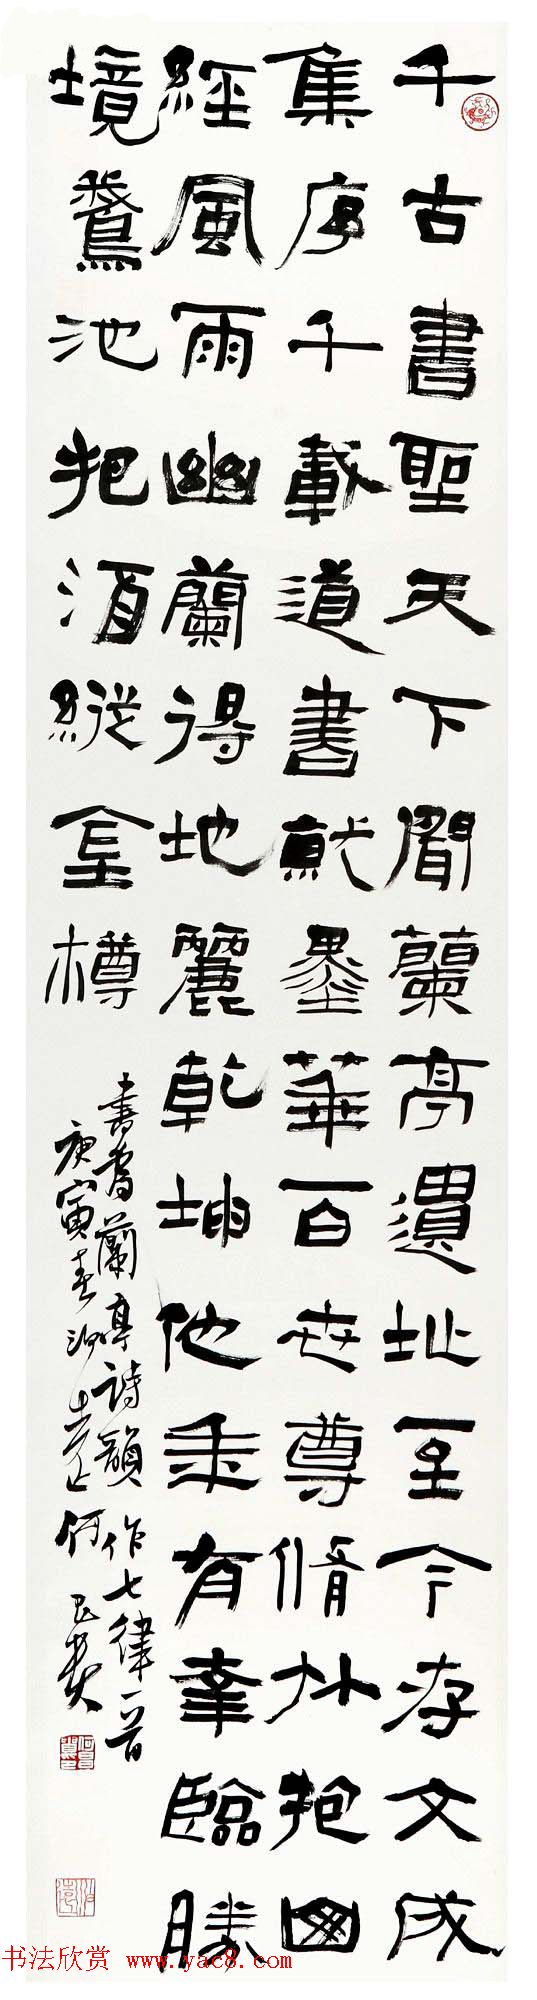 千古書聖天下聞蘭亭遺址至今存文成
集序千載道書就墨華百世尊脩竹抱
經風雨幽蘭得地麗乾坤他年有幸臨勝
境鵞池把酒縱金樽
書蘭亭詩韻作七律一首
庚寅春何
书法欣赏 www.yac8.com